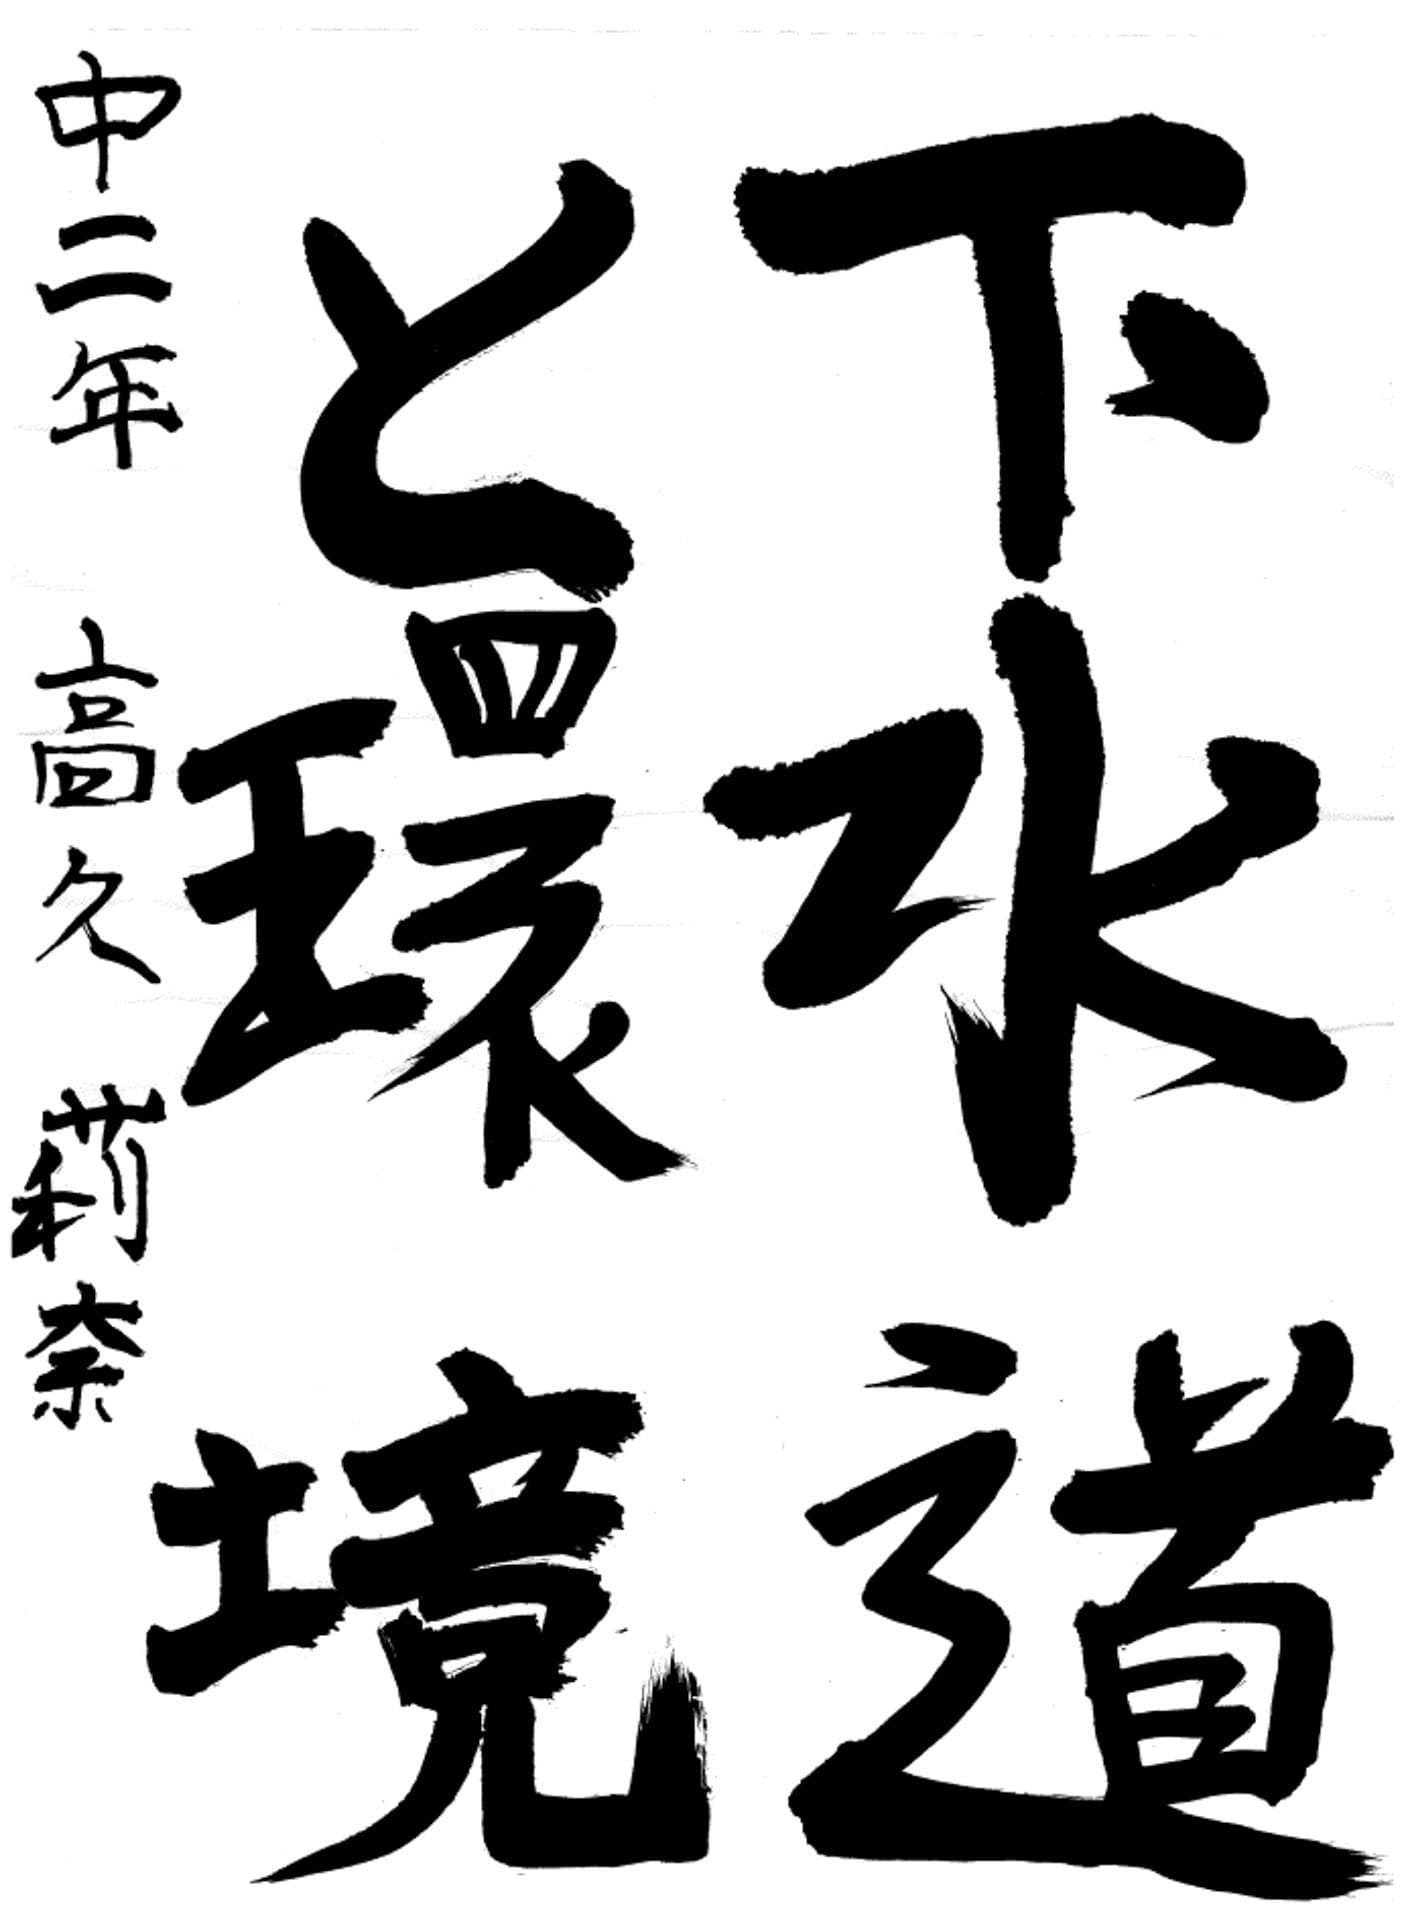 下水道
と環境
中二年 高久 莉奈